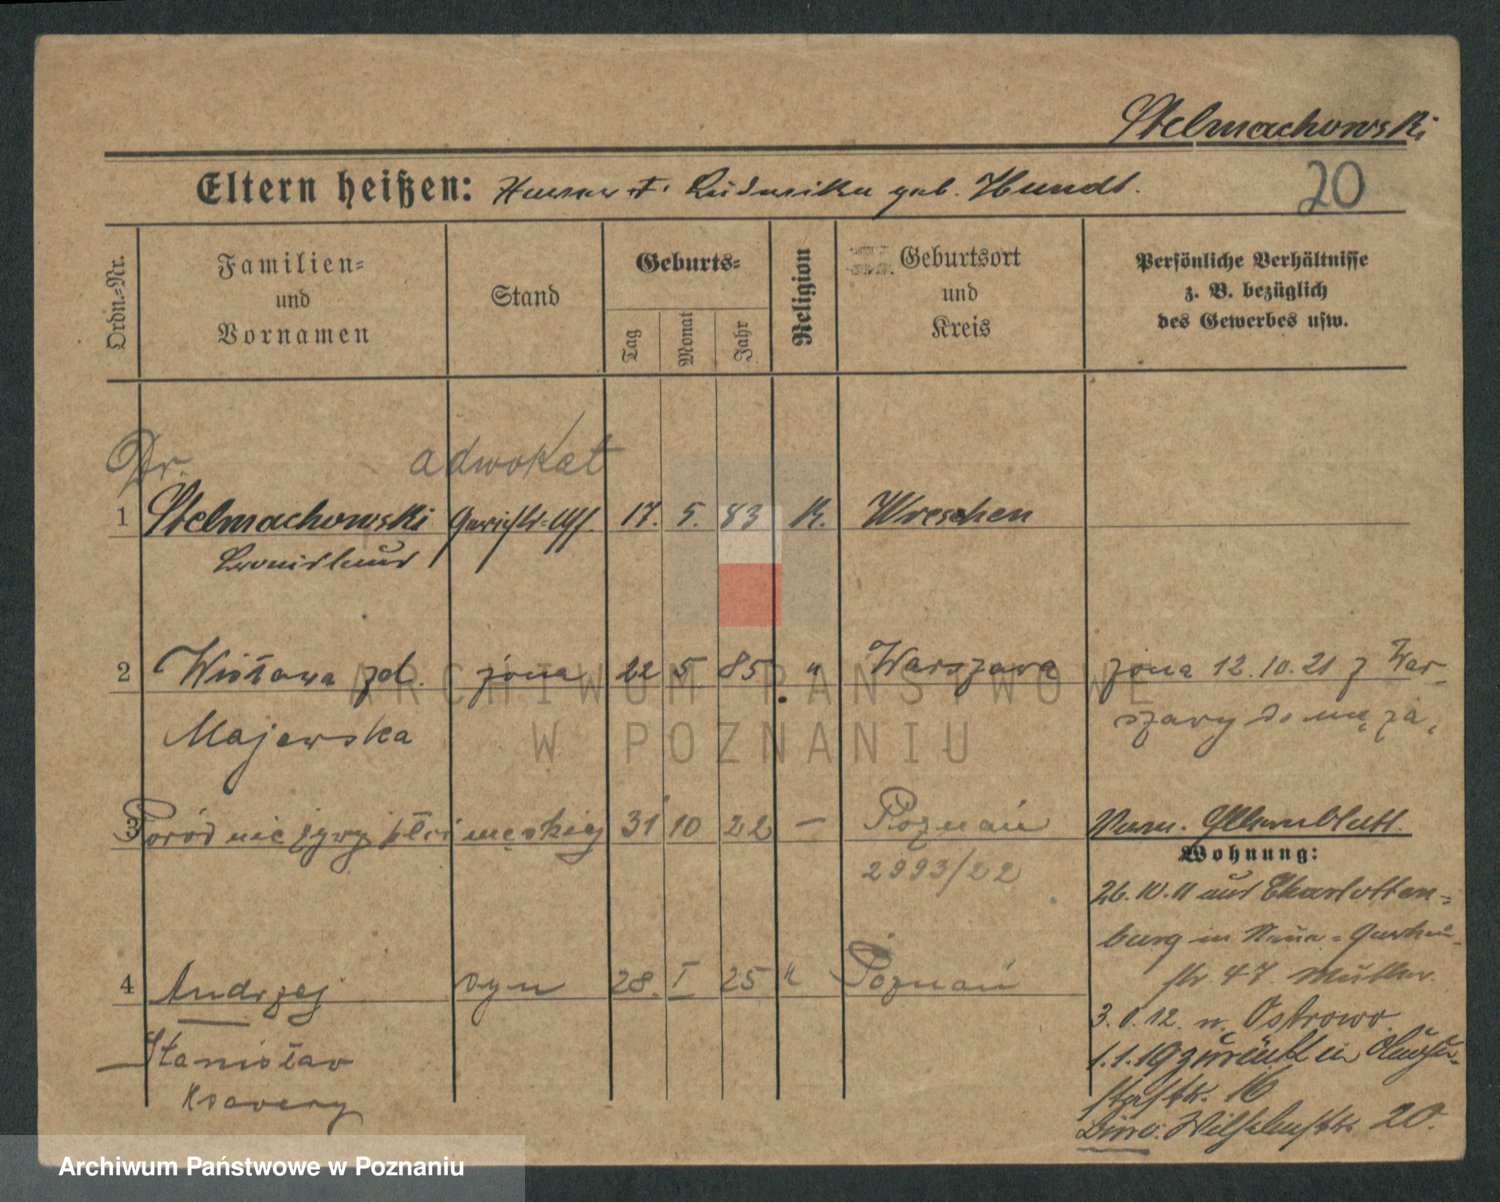 Stelmachowski
Eltern heißen: Ludwika geb. Hundt.
20
Ordn.-Nr.
Familien-
und
Vornamen
Stand
Geburts-
Tag
Monat
Jahr
Religion
Geburtsort
und
Kreis
Persönliche Verhältnisse
z. B. bezüglich
des Gewerbes usw.
Dr. adwokat
1 Stelmachowski Gerichts-Ass. 17. 5. 83 K. Wreschen
Bronislaus
2 Wisława zd. żona 22 5. 85 " Warszawa żona 12.10.21 z War-
Majewska szawy do męża.
3 Poród nieżywy płci męskiej 31 10 22 — Poznań
2993/22
Wohnung:
26.10.11 aus Charlotten-
burg in
str 47. Mutter.
4 Andrzej syn 28. I 25 " Poznań
3. 12. n. Ostrowo.
Stanisław
1.1.19 zurück in
Ksawery
16
Büro: Wilhelmstr. 20.
ARCHIWUM PAŃSTWOWE
W POZNANIU
Archiwum Państwowe w Poznaniu